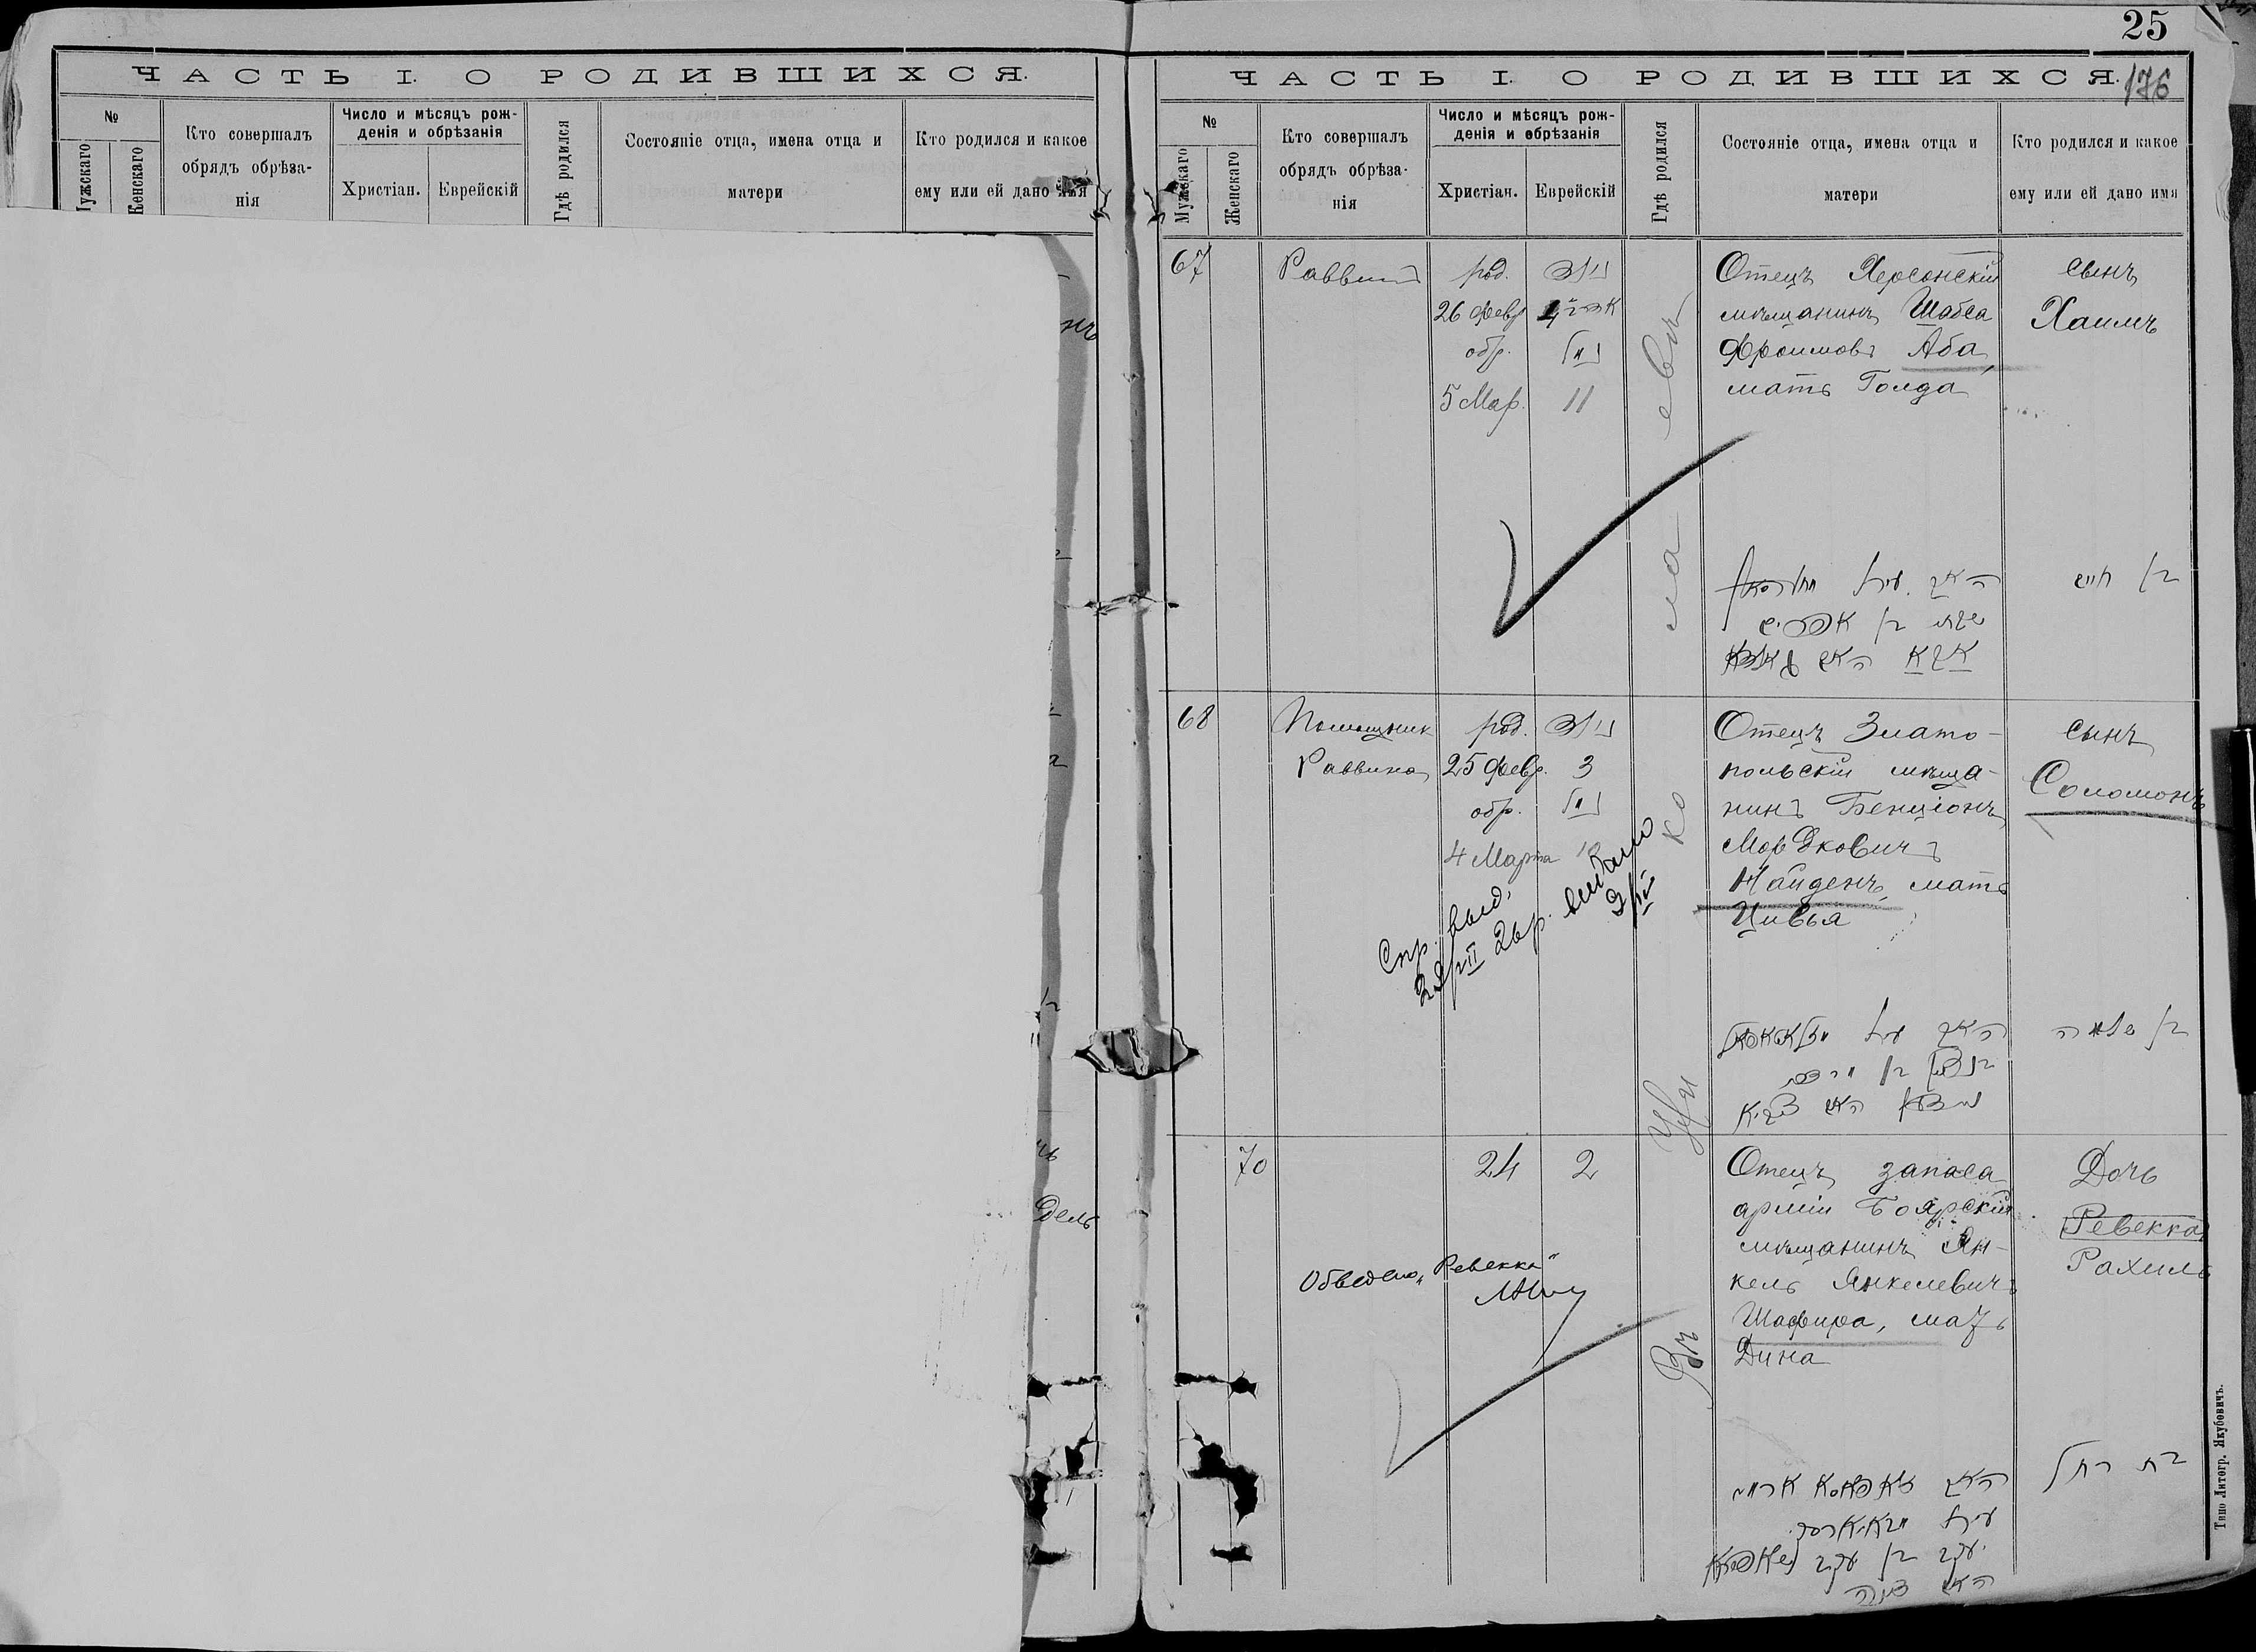 25
176
ЧАСТЬ I. О РОДИВШИХСЯ.
№
Мужскаго
Женскаго
Кто совершалъ
обрядъ обрѣза-
нія
Число и мѣсяцъ рож-
денія и обрѣзанія
Христіан.
Еврейскій
Гдѣ родился
Состояніе отца, имена отца и
матери
Кто родился и какое
ему или ей дано имя
нъ
Дель
ЧАСТЬ I. О РОДИВШИХСЯ.
№
Мужскаго
Женскаго
Кто совершалъ
обрядъ обрѣза-
нія
Число и мѣсяцъ рож-
денія и обрѣзанія
Христіан.
Еврейскій
Гдѣ родился
Состояніе отца, имена отца и
матери
Кто родился и какое
ему или ей дано имя
Въ
67
Раввинъ
род.
26 февр
обр.
5 Мар.
11
Отецъ Херсонскій
мѣщанинъ Шабса
Фроимовъ Аба,
мать Голда
сынъ
Хаимъ
האב עיר
שבתי בן אפרים
אבא האם גאלדא
בן חיים
68
Помощник
Раввина
род.
25 февр.
3
обр.
4 Марта
Отецъ Злато-
польскій мѣща-
нинъ Бенціонъ
Мордковичъ
Найденъ, мать
Цивья
сынъ
Соломонъ
Спр. выд.
האב עיר
בנציון בן מרדכי
האם צביא
בן שלמה
70
24
2
Отецъ запаса
арміи Боярскій
мѣщанинъ Ян-
кель Янкелевичъ
Шафира, мать
Дина
Дочь
Ревекка
Рахиль
Обведено „Ревекка"
האב
עיר
יעקב בן יעקב
האם דינה
בת רחל
Типо Литогр. Якубовичъ.